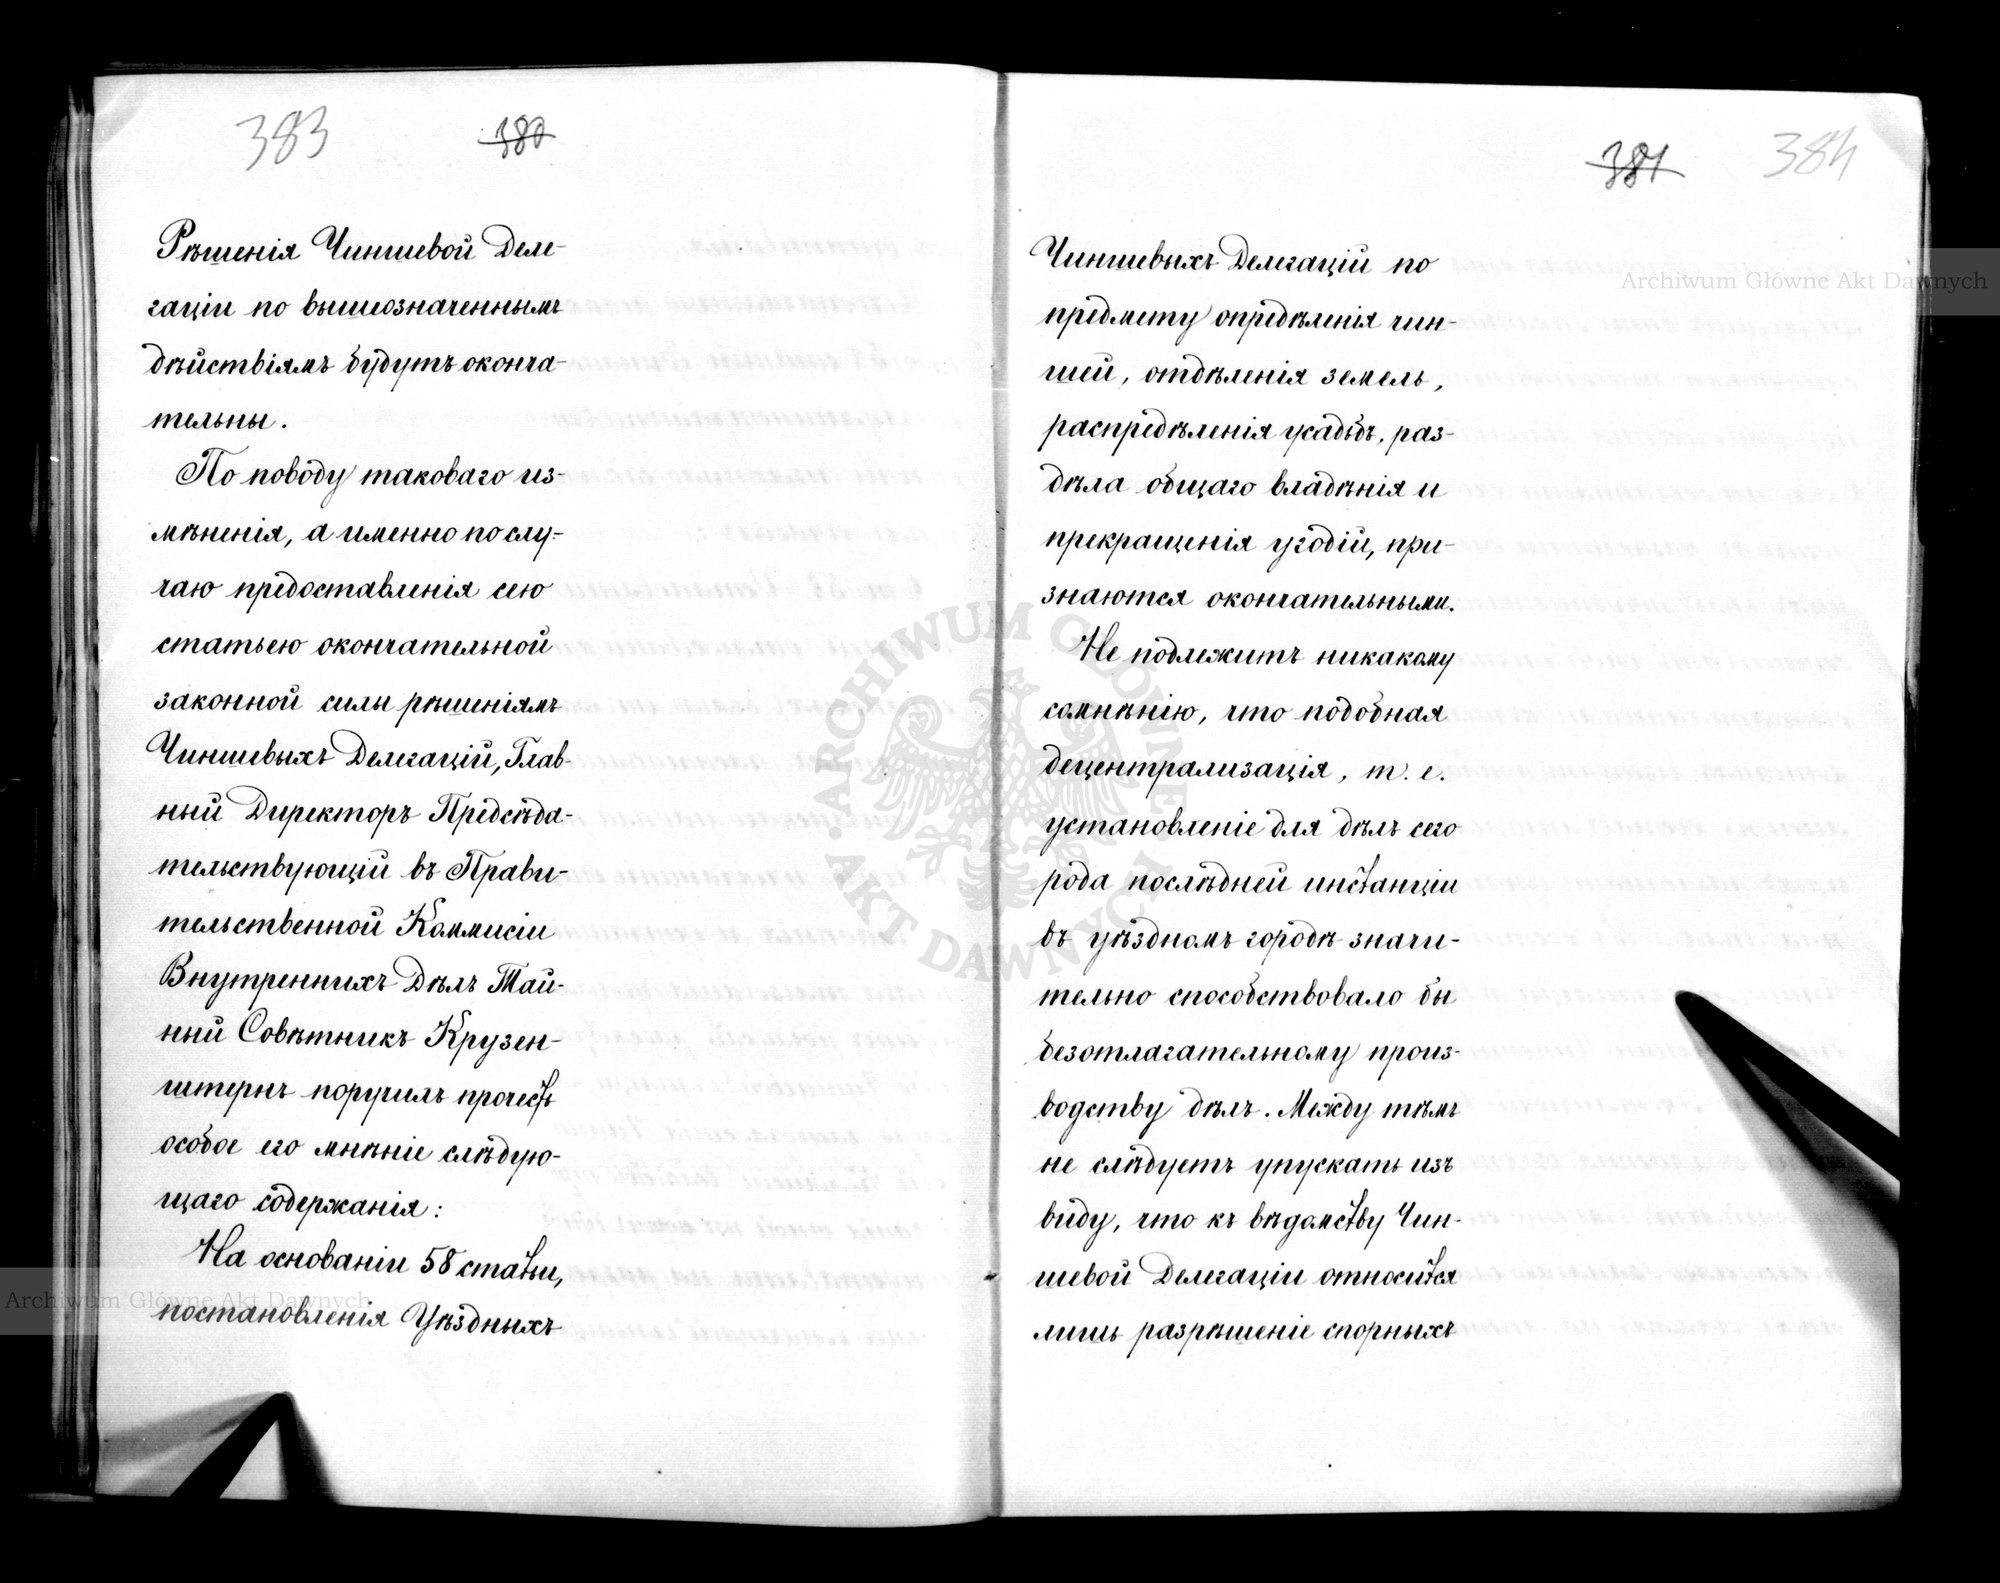 383 380
Рѣшенія Чиншевой Деле-
гаціи по вышеозначеннымъ
дѣйствіямъ будутъ оконча-
тельны.
По поводу таковаго из-
мѣненія, а именно по слу-
чаю предоставленія сею
статьею окончательной
законной силы рѣшеніямъ
Чиншевыхъ Делегацій, Глав-
ный Директоръ Предсѣда-
тельствующій въ Прави-
тельственной Коммисіи
Внутреннихъ Дѣлъ Тай-
ный Совѣтникъ Крузен-
штернъ поручилъ прочесть
особое его мнѣніе слѣдую-
щаго содержанія:
На основаніи 58 статьи,
постановленія Уѣздныхъ
381 384
Чиншевыхъ Делегацій по
предмету опредѣленія чин-
шей, отдѣленія земель,
распредѣленія усадьбъ, раз-
дѣла общаго владѣнія и
прекращенія угодій, при-
знаются окончательными.
Не подлежитъ никакому
сомнѣнію, что подобная
децентрализація, т. е.
установленіе для дѣлъ сего
рода послѣдней инстанціи
въ уѣздномъ городѣ значи-
тельно способствовало бы
безотлагательному произ-
водству дѣлъ. Между тѣмъ
не слѣдуетъ упускать изъ
виду, что къ вѣдомству Чин-
шевой Делегаціи относится
лишь разрѣшеніе спорныхъ
Archiwum Główne Akt Dawnych
Archiwum Główne Akt Dawnych
ARCHIWUM GŁÓWNE AKT DAWNYCH